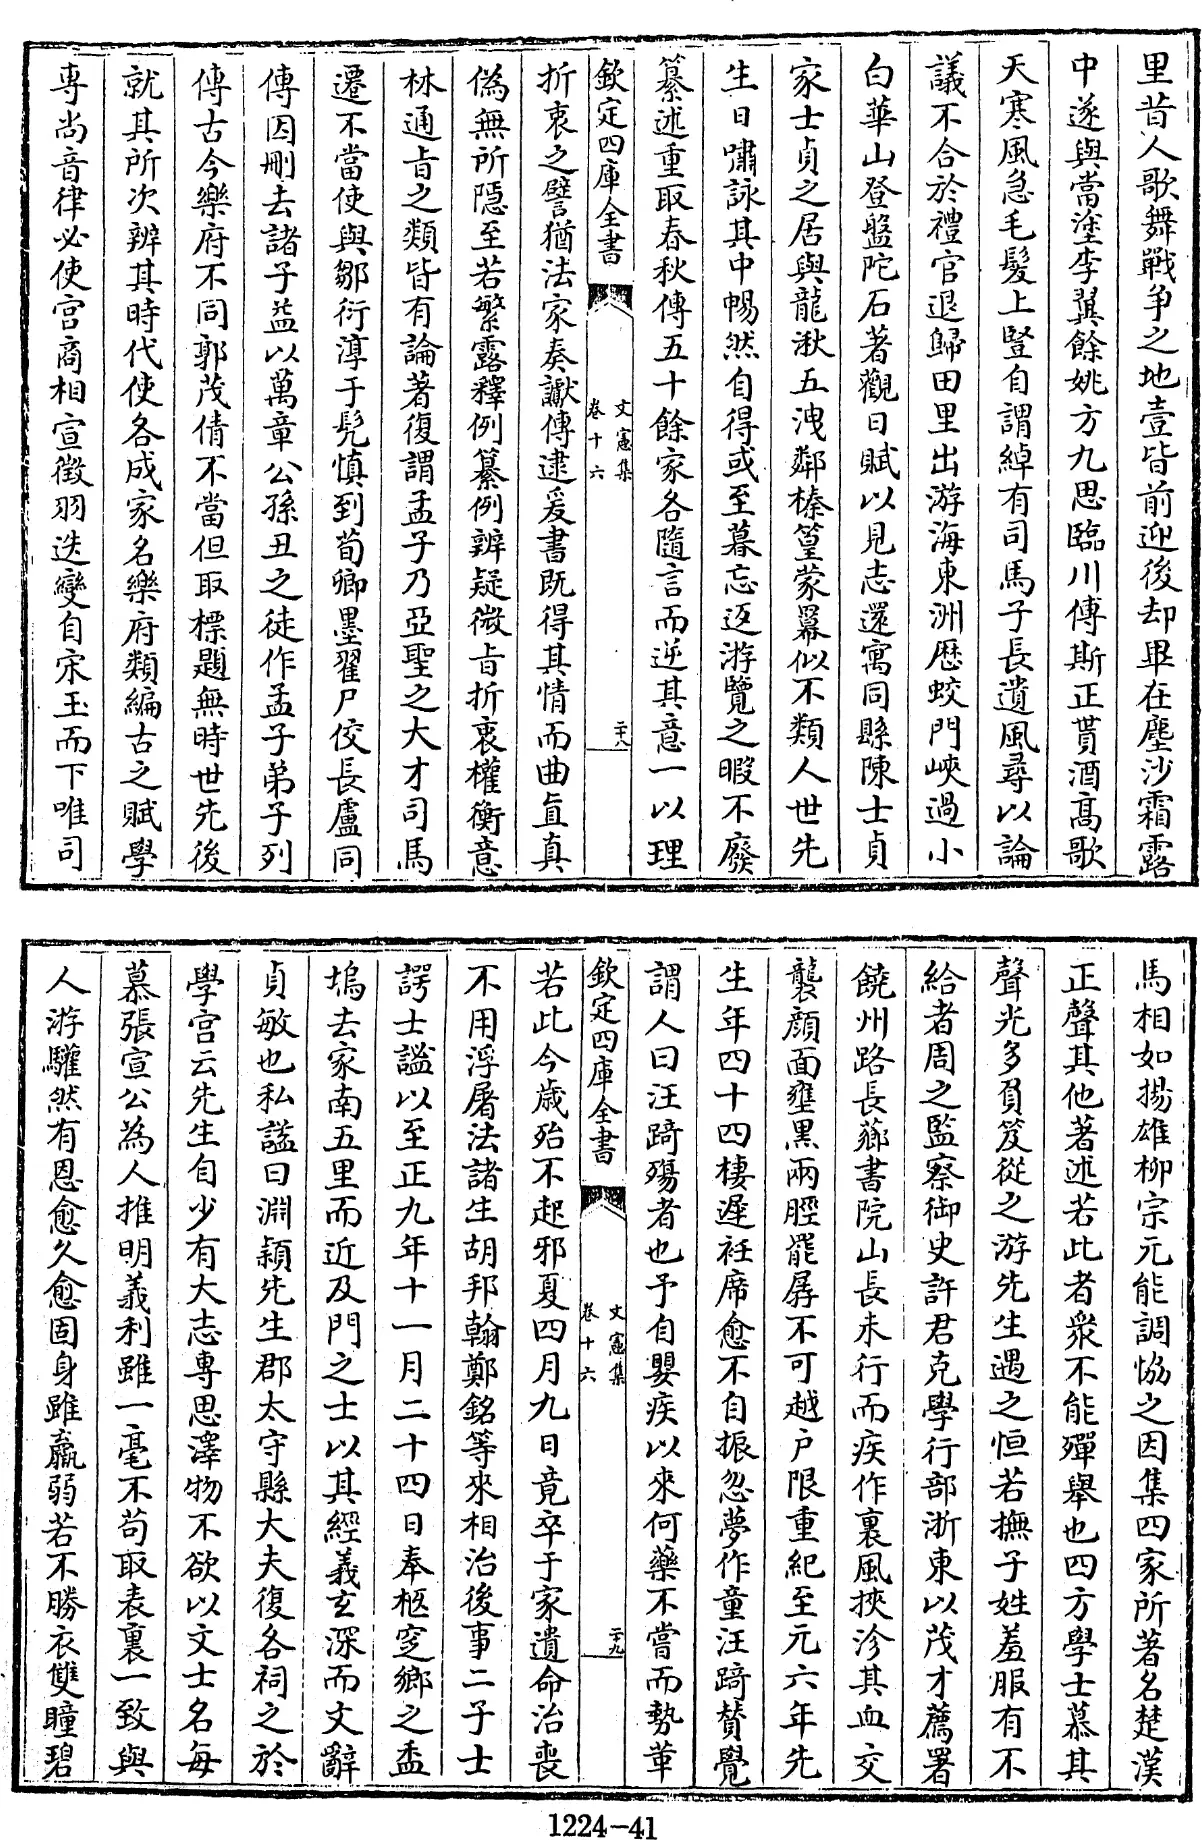 里昔人歌舞戰争之地壹皆前迎後却畢在塵沙霜露
中遂與當塗李翼餘姚方九思臨川傅斯正貰酒髙歌
天寒風急毛髮上豎自謂綽有司馬子長遺風尋以論
議不合於禮官退歸田里出游海東洲歴蛟門峽過小
白華山登盤陀石著觀日賦以見志還寓同縣陳士貞
家士貞之居與龍湫五洩鄰榛篁蒙羃似不類人世先
生日嘯詠其中暢然自得或至暮忘返游覽之暇不廢
纂述重取春秋傳五十餘家各隨言而逆其意一以理
欽定四庫全書
文憲集
卷十六
二十八
折衷之譬猶法家奏讞傳逮爰書既得其情而曲直真
偽無所隱至若繁露釋例纂例辨疑微㫖折衷權衡意
林通㫖之類皆有論著復謂孟子乃亞聖之大才司馬
遷不當使與鄒衍淳于髠慎到荀卿墨翟尸佼長盧同
傳因刪去諸子益以萬章公孫丑之徒作孟子弟子列
傳古今樂府不同郭茂倩不當但取標題無時世先後
就其所次辨其時代使各成家名樂府類編古之賦學
専尚音律必使宫商相宣徵羽迭變自宋玉而下唯司
馬相如揚雄柳宗元能調協之因集四家所著名楚漢
正聲其他著述若此者衆不能殫舉也四方學士慕其
聲光多負笈從之游先生遇之恒若撫子姓羞服有不
給者周之監察御史許君克學行部浙東以茂才薦署
饒州路長薌書院山長未行而疾作裏風挾沴其血交
襲顔面壅黒兩脛罷孱不可越户限重紀至元六年先
生年四十四棲遲衽席愈不自振忽夢作童汪踦賛覺
謂人曰汪踦殤者也予自嬰疾以來何藥不嘗而勢革
欽定四庫全書
文憲集
卷十六
二十九
若此今歳殆不起邪夏四月九日竟卒于家遺命治喪
不用浮屠法諸生胡邦翰鄭銘等來相治後事二子士
諤士謐以至正九年十一月二十四日奉柩窆鄉之盂
塢去家南五里而近及門之士以其經義玄深而文辭
貞敏也私諡曰淵穎先生郡太守縣大夫復各祠之於
學宫云先生自少有大志専思澤物不欲以文士名每
慕張宣公為人推明義利雖一毫不茍取表裏一致與
人游驩然有恩愈久愈固身雖羸弱若不勝衣雙瞳碧
1224-41